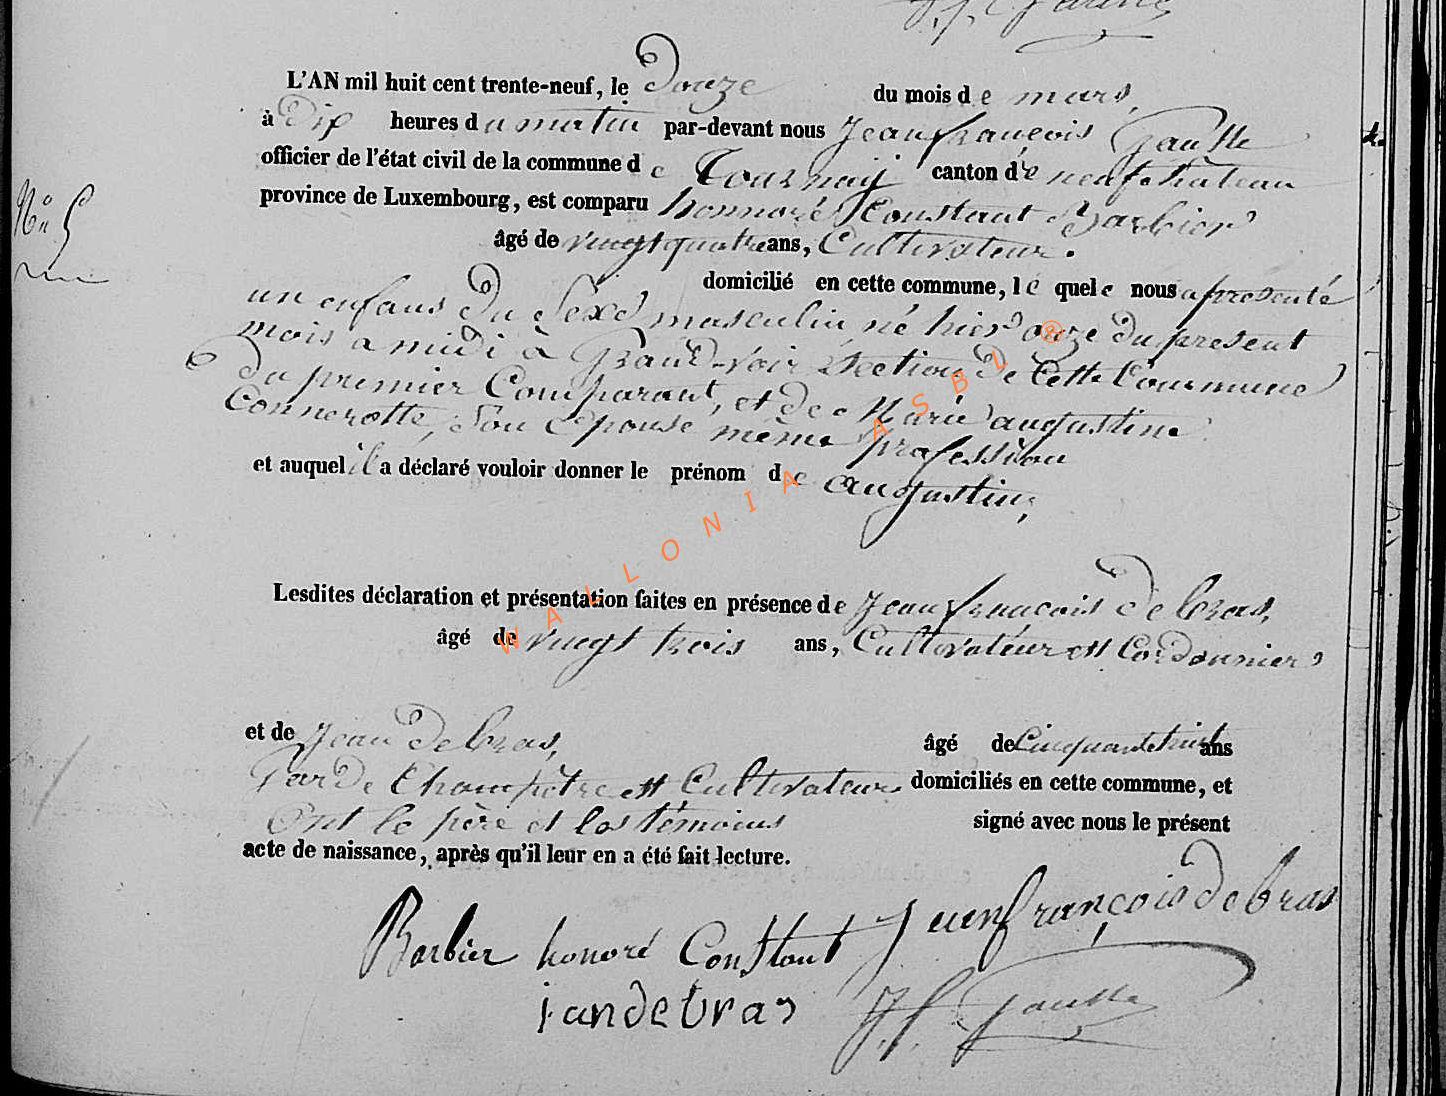 L'AN mil huit cent trente-neuf, le Douze du mois de mars,
à Dix heures du matin par-devant nous Jean françois Gausse
officier de l'état civil de la commune de Tournay canton de neufchâteau
N° 5
province de Luxembourg, est comparu honnoré Constant Barbier
âgé de vingt quatre ans, Cultivateur.
domicilié en cette commune, le quel nous a presenté
un enfans du Sexe masculin né hier onze du present
mois a midi à Grand-voir Section de cette Commune
Du premier Comparant, et de Marie augustine
Connerotte, Son Epouse même profession
et auquel il a déclaré vouloir donner le prénom de augustin,
Lesdites déclaration et présentation faites en présence de Jean françois debras,
âgé de vingt trois ans, Cultivateur et Cordonnier
et de Jean debras, âgé de Cinquante huit ans
Garde Champêtre et Cultivateur domiciliés en cette commune, et
Ont le père et les témoins signé avec nous le présent
acte de naissance, après qu'il leur en a été fait lecture.
Barbier honoré Constant Jeanfrançois debras
jandebras J. f. Gausse
WALLONIA ASBL ®